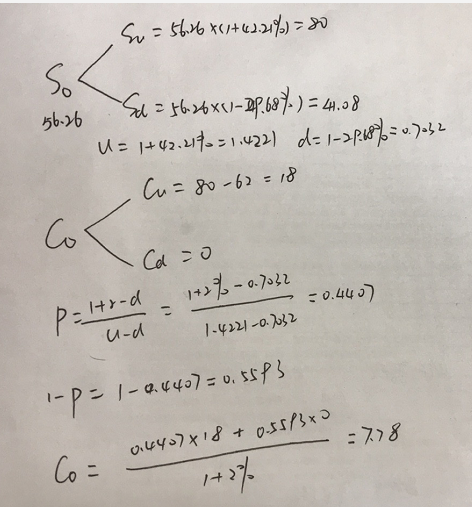 Su = 56.26×(1+42.21%) = 80
S0
56.26
Sd = 56.26×(1-29.68%) = 41.08
u = 1+42.21% = 1.4221 d = 1-29.68% = 0.7032
Cu = 80-62 = 18
C0
Cd = 0
P = (1+r-d)/(u-d) = (1+2%-0.7032)/(1.4221-0.7032) = 0.4407
1-P = 1-0.4407 = 0.5593
C0 = (0.4407×18 + 0.5593×0)/(1+2%) = 7.78